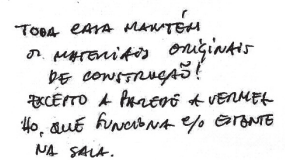 TODA CASA MANTÉM
OS MATERIAIS ORIGINAIS
DE CONSTRUÇÃO!
EXCEPTO A PAREDE A VERMEL
HO, QUE FUNCIONA c/o ESTANTE
NA SALA.